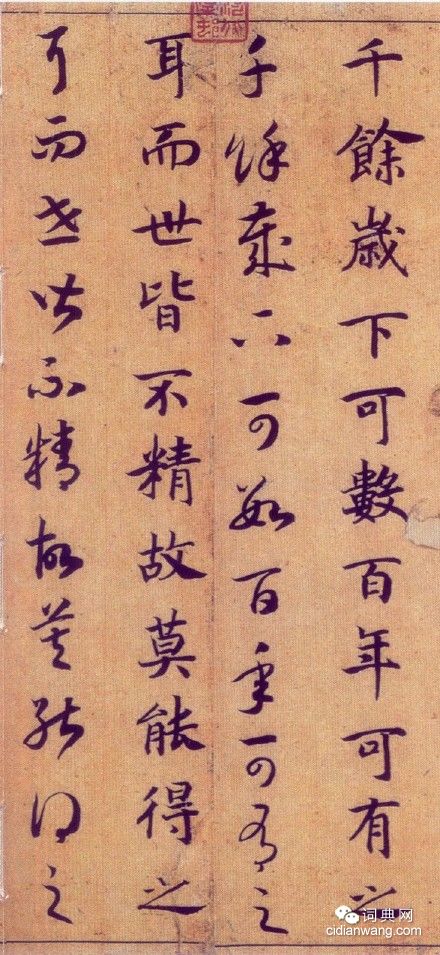 千餘歲下可數百年可有之
千餘歲下可數百年可有之
耳而世皆不精故莫能得之
耳而世皆不精故莫能得之
词典网
cidianwang.com